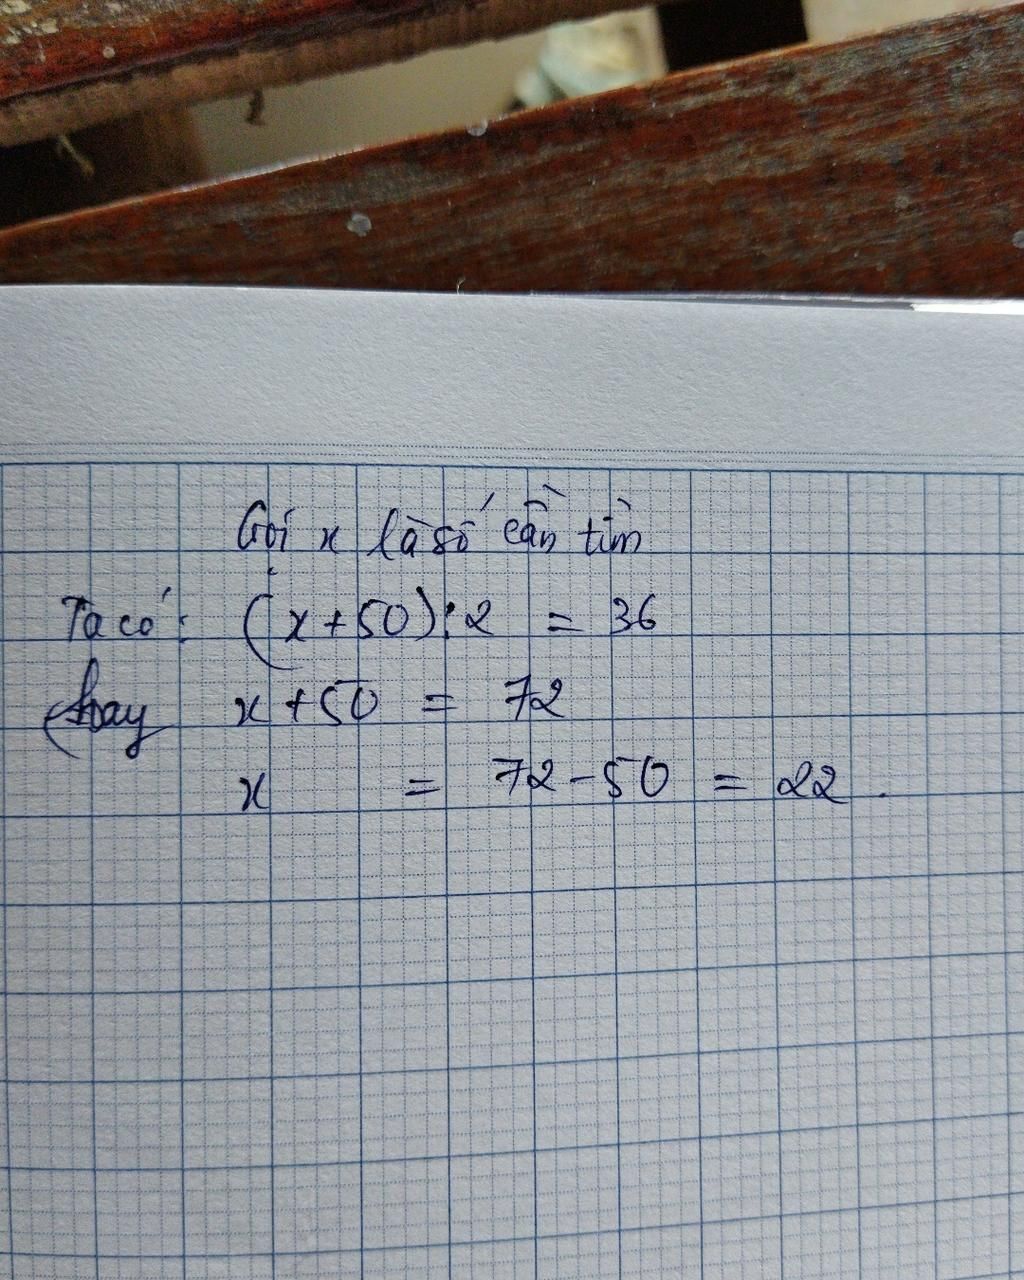 Gọi x là số cần tìm
Ta có: (x+50):2 = 36
hay x+50 = 72
x = 72-50 = 22.